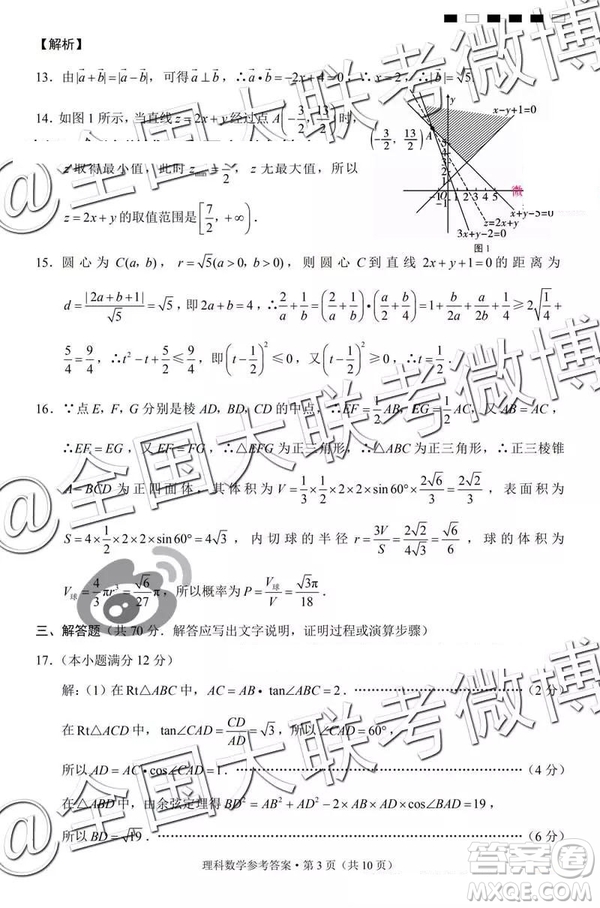 【解析】
13. 由|a⃗+b⃗|=|a⃗−b⃗|, 可得a⃗⊥b⃗, ∴a⃗•b⃗=−2x+4=0, ∴x=2, ∴|b⃗|=√5.
14. 如图1所示, 当直线z=2x+y经过点A(−3/2, 13/2)时,
z取得最小值, 此时z_min=7/2, z无最大值, 所以
z=2x+y的取值范围是[7/2, +∞).
(−3/2, 13/2)
A
y
x−y+1=0
1 2 3 4 5
x+y−5=0
z=2x+y
3x+y−2=0
图1
15. 圆心为C(a, b), r=√5(a>0, b>0), 则圆心C到直线2x+y+1=0的距离为
d=|2a+b+1|/√5=√5, 即2a+b=4, ∴2/a+1/b=(2/a+1/b)•(a/2+b/4)=1+b/2a+a/2b+1/4≥2√(1/4)+
5/4=9/4, ∴t²−t+5/2≤9/4, 即(t−1/2)²≤0, 又(t−1/2)²≥0, ∴t=1/2.
16. ∵点E, F, G分别是棱AD, BD, CD的中点, ∴EF=1/2AB, EG=1/2AC, 又AB=AC,
∴EF=EG, 又EF⊥FG, ∴△EFG为正三角形, ∴△ABC为正三角形, ∴正三棱锥
A−BCD为正四面体, 其体积为V=1/3×1/2×2×2×sin60°×2√6/3=2√2/3, 表面积为
S=4×1/2×2×2×sin60°=4√3, 内切球的半径r=3V/S=2√2/4√3=√6/6, 球的体积为
V球=4/3πr³=√6/27π, 所以概率为P=V球/V=√3π/18.
三、解答题(共70分. 解答应写出文字说明, 证明过程或演算步骤)
17. (本小题满分12分)
解: (1)在Rt△ABC中, AC=AB•tan∠ABC=2. ……(2分)
在Rt△ACD中, tan∠CAD=CD/AD=√3, 所以∠CAD=60°,
所以AD=AC•cos∠CAD=1. ……(4分)
在△ABD中, 由余弦定理得BD²=AB²+AD²−2×AB×AD×cos∠BAD=19,
所以BD=√19. ……(6分)
理科数学参考答案·第3页(共10页)
@全国大联考微博
@全国大联考微博
@全国大联考微博
答案圈